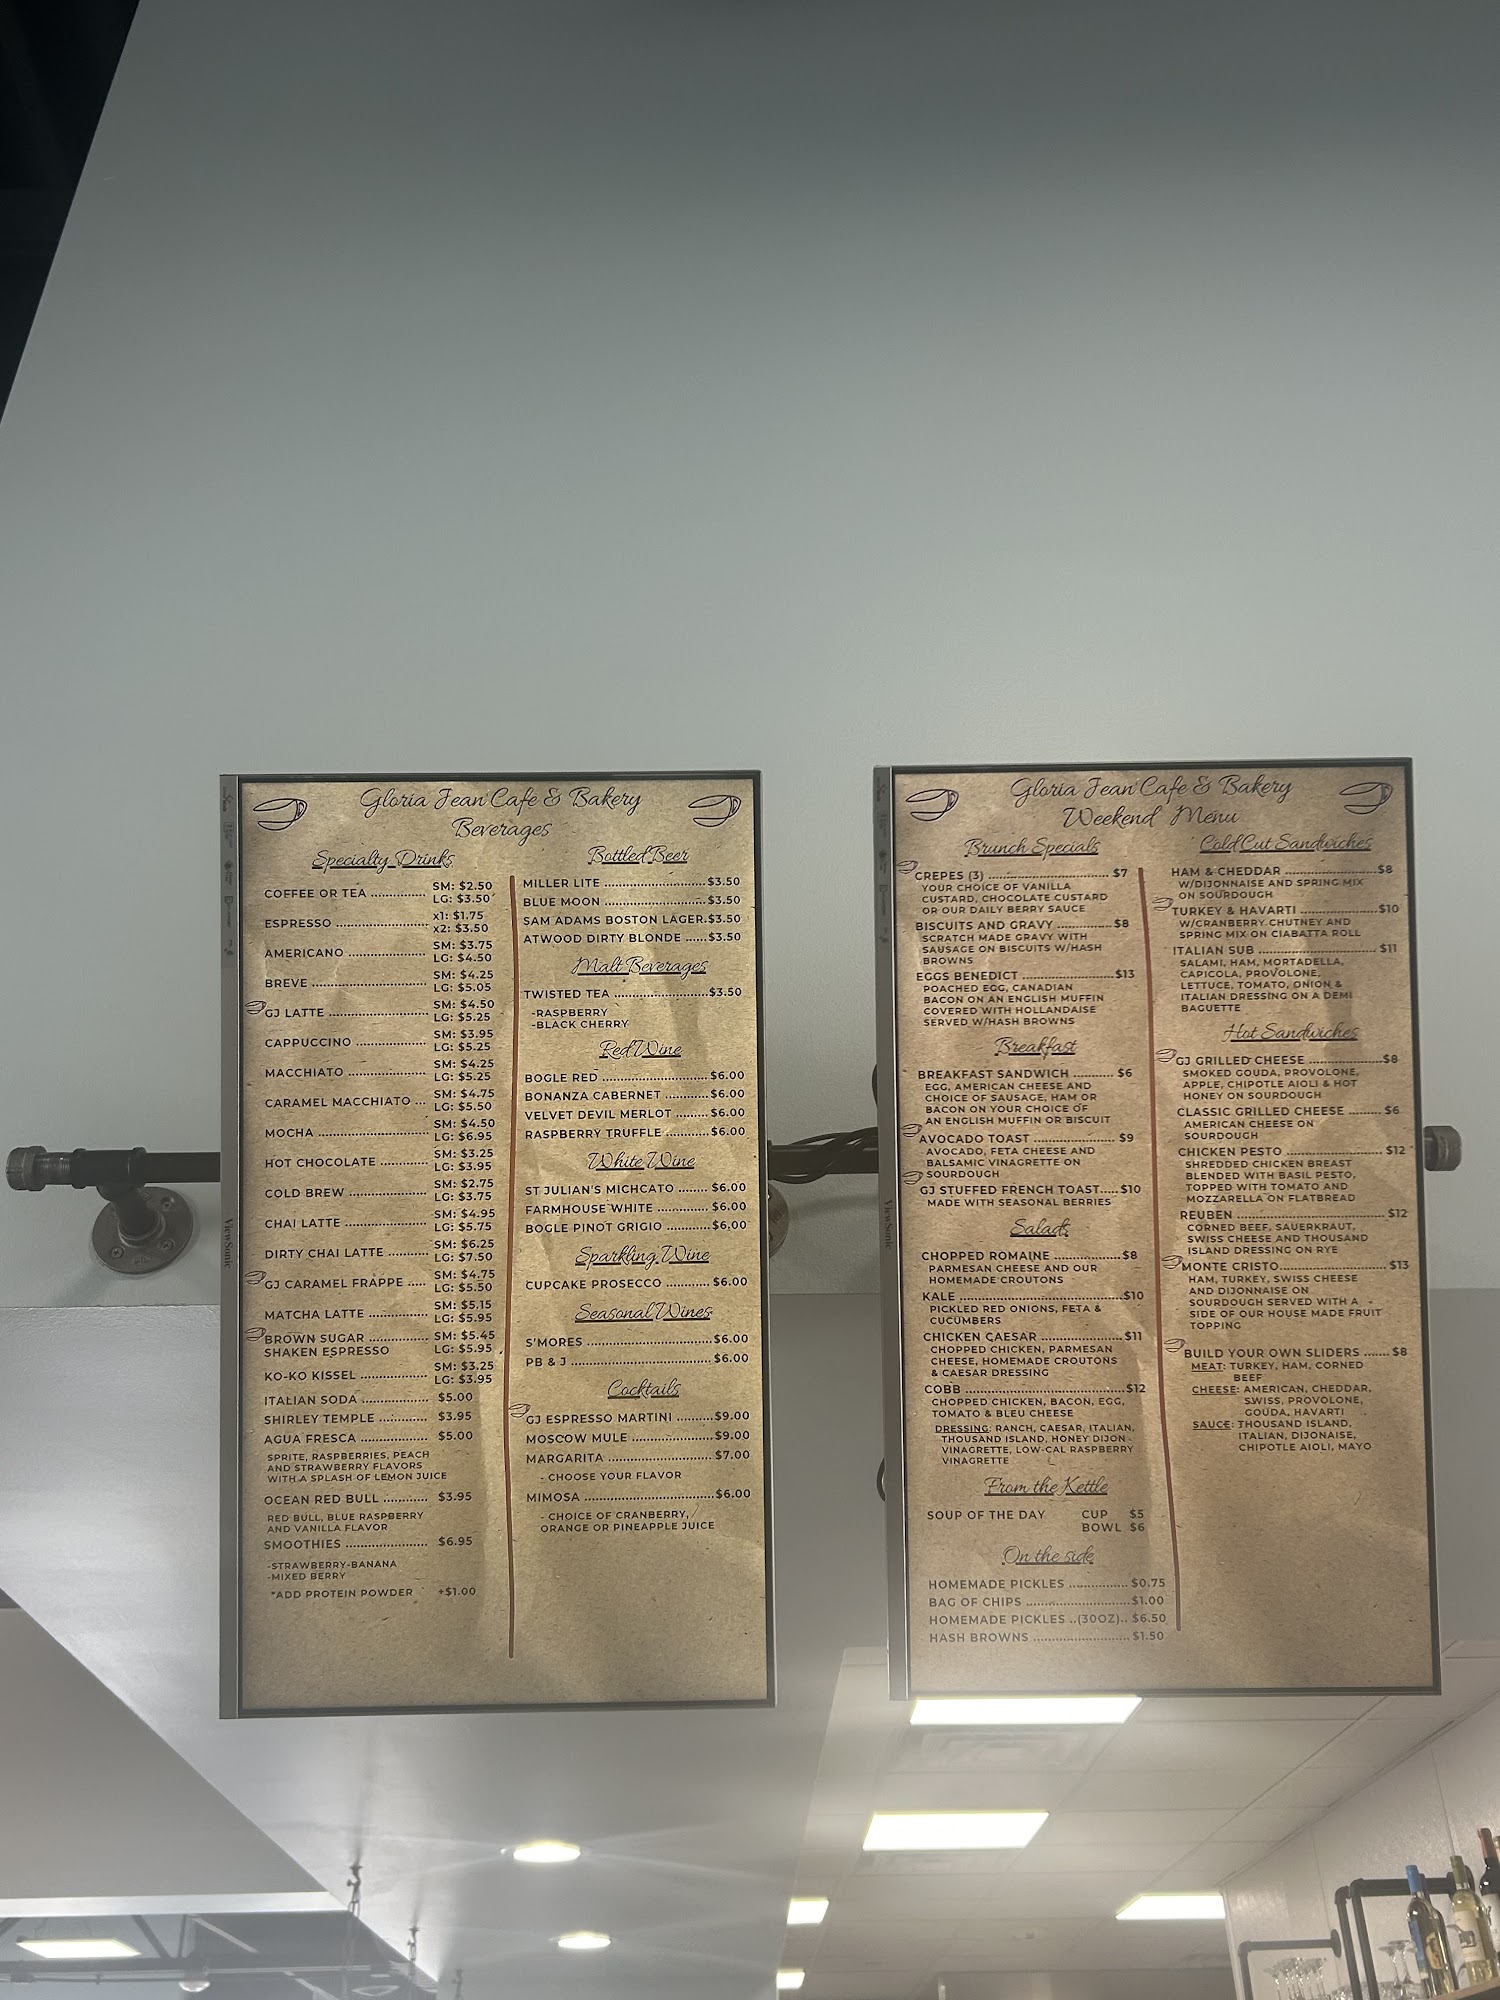 Gloria Jean Cafe & Bakery
Beverages
Specialty Drinks
COFFEE OR TEA .......... SM: $2.50
LG: $3.50
ESPRESSO .......... x1: $1.75
x2: $3.50
AMERICANO .......... SM: $3.75
LG: $4.50
BREVE .......... SM: $4.25
LG: $5.05
GJ LATTE .......... SM: $4.50
LG: $5.25
CAPPUCCINO .......... SM: $3.95
LG: $5.25
MACCHIATO .......... SM: $4.25
LG: $5.25
CARAMEL MACCHIATO ... SM: $4.75
LG: $5.50
MOCHA .......... SM: $4.50
LG: $6.95
HOT CHOCOLATE .......... SM: $3.25
LG: $3.95
COLD BREW .......... SM: $2.75
LG: $3.75
CHAI LATTE .......... SM: $4.95
LG: $5.75
DIRTY CHAI LATTE .......... SM: $6.25
LG: $7.50
GJ CARAMEL FRAPPE ..... SM: $4.75
LG: $5.50
MATCHA LATTE .......... SM: $5.15
LG: $5.95
BROWN SUGAR .......... SM: $5.45
SHAKEN ESPRESSO LG: $5.95
KO-KO KISSEL .......... SM: $3.25
LG: $3.95
ITALIAN SODA .......... $5.00
SHIRLEY TEMPLE .......... $3.95
AGUA FRESCA .......... $5.00
SPRITE, RASPBERRIES, PEACH
AND STRAWBERRY FLAVORS
WITH A SPLASH OF LEMON JUICE
OCEAN RED BULL .......... $3.95
RED BULL, BLUE RASPBERRY
AND VANILLA FLAVOR
SMOOTHIES .......... $6.95
-STRAWBERRY-BANANA
-MIXED BERRY
*ADD PROTEIN POWDER +$1.00
Bottled Beer
MILLER LITE .......... $3.50
BLUE MOON .......... $3.50
SAM ADAMS BOSTON LAGER.$3.50
ATWOOD DIRTY BLONDE ......$3.50
Malt Beverages
TWISTED TEA .......... $3.50
-RASPBERRY
-BLACK CHERRY
Red Wine
BOGLE RED .......... $6.00
BONANZA CABERNET .......... $6.00
VELVET DEVIL MERLOT ........ $6.00
RASPBERRY TRUFFLE .......... $6.00
White Wine
ST JULIAN'S MICHCATO ........ $6.00
FARMHOUSE WHITE .......... $6.00
BOGLE PINOT GRIGIO .......... $6.00
Sparkling Wine
CUPCAKE PROSECCO .......... $6.00
Seasonal Wines
S'MORES .......... $6.00
PB & J .......... $6.00
Cocktails
GJ ESPRESSO MARTINI .......... $9.00
MOSCOW MULE .......... $9.00
MARGARITA .......... $7.00
- CHOOSE YOUR FLAVOR
MIMOSA .......... $6.00
- CHOICE OF CRANBERRY,
ORANGE OR PINEAPPLE JUICE
ViewSonic
Gloria Jean Cafe & Bakery
Weekend Menu
Brunch Specials
CREPES (3) .......... $7
YOUR CHOICE OF VANILLA
CUSTARD, CHOCOLATE CUSTARD
OR OUR DAILY BERRY SAUCE
BISCUITS AND GRAVY .......... $8
SCRATCH MADE GRAVY WITH
SAUSAGE ON BISCUITS W/HASH
BROWNS
EGGS BENEDICT .......... $13
POACHED EGG, CANADIAN
BACON ON AN ENGLISH MUFFIN
COVERED WITH HOLLANDAISE
SERVED W/HASH BROWNS
Breakfast
BREAKFAST SANDWICH .......... $6
EGG, AMERICAN CHEESE AND
CHOICE OF SAUSAGE, HAM OR
BACON ON YOUR CHOICE OF
AN ENGLISH MUFFIN OR BISCUIT
AVOCADO TOAST .......... $9
AVOCADO, FETA CHEESE AND
BALSAMIC VINAGRETTE ON
SOURDOUGH
GJ STUFFED FRENCH TOAST.....$10
MADE WITH SEASONAL BERRIES
Salads
CHOPPED ROMAINE .......... $8
PARMESAN CHEESE AND OUR
HOMEMADE CROUTONS
KALE .......... $10
PICKLED RED ONIONS, FETA &
CUCUMBERS
CHICKEN CAESAR .......... $11
CHOPPED CHICKEN, PARMESAN
CHEESE, HOMEMADE CROUTONS
& CAESAR DRESSING
COBB .......... $12
CHOPPED CHICKEN, BACON, EGG,
TOMATO & BLEU CHEESE
DRESSING: RANCH, CAESAR, ITALIAN,
THOUSAND ISLAND, HONEY DIJON
VINAGRETTE, LOW-CAL RASPBERRY
VINAGRETTE
From the Kettle
SOUP OF THE DAY CUP $5
BOWL $6
On the side
HOMEMADE PICKLES .......... $0.75
BAG OF CHIPS .......... $1.00
HOMEMADE PICKLES ..(30OZ).. $6.50
HASH BROWNS .......... $1.50
Cold Cut Sandwiches
HAM & CHEDDAR .......... $8
W/DIJONNAISE AND SPRING MIX
ON SOURDOUGH
TURKEY & HAVARTI .......... $10
W/CRANBERRY CHUTNEY AND
SPRING MIX ON CIABATTA ROLL
ITALIAN SUB .......... $11
SALAMI, HAM, MORTADELLA,
CAPICOLA, PROVOLONE,
LETTUCE, TOMATO, ONION &
ITALIAN DRESSING ON A DEMI
BAGUETTE
Hot Sandwiches
GJ GRILLED CHEESE .......... $8
SMOKED GOUDA, PROVOLONE,
APPLE, CHIPOTLE AIOLI & HOT
HONEY ON SOURDOUGH
CLASSIC GRILLED CHEESE ........ $6
AMERICAN CHEESE ON
SOURDOUGH
CHICKEN PESTO .......... $12
SHREDDED CHICKEN BREAST
BLENDED WITH BASIL PESTO,
TOPPED WITH TOMATO AND
MOZZARELLA ON FLATBREAD
REUBEN .......... $12
CORNED BEEF, SAUERKRAUT,
SWISS CHEESE AND THOUSAND
ISLAND DRESSING ON RYE
MONTE CRISTO.......... $13
HAM, TURKEY, SWISS CHEESE
AND DIJONNAISE ON
SOURDOUGH SERVED WITH A
SIDE OF OUR HOUSE MADE FRUIT
TOPPING
BUILD YOUR OWN SLIDERS ...... $8
MEAT: TURKEY, HAM, CORNED
BEEF
CHEESE: AMERICAN, CHEDDAR,
SWISS, PROVOLONE,
GOUDA, HAVARTI
SAUCE: THOUSAND ISLAND,
ITALIAN, DIJONAISE,
CHIPOTLE AIOLI, MAYO
ViewSonic